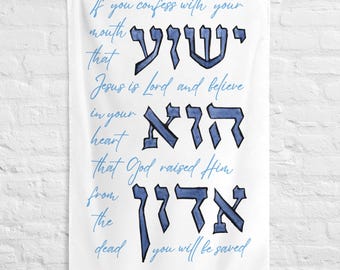 If you confess with your
mouth
that
ישוע
Jesus is Lord and believe
in your
heart
הוא
that God raised Him
from
the
dead
אדון
you will be saved